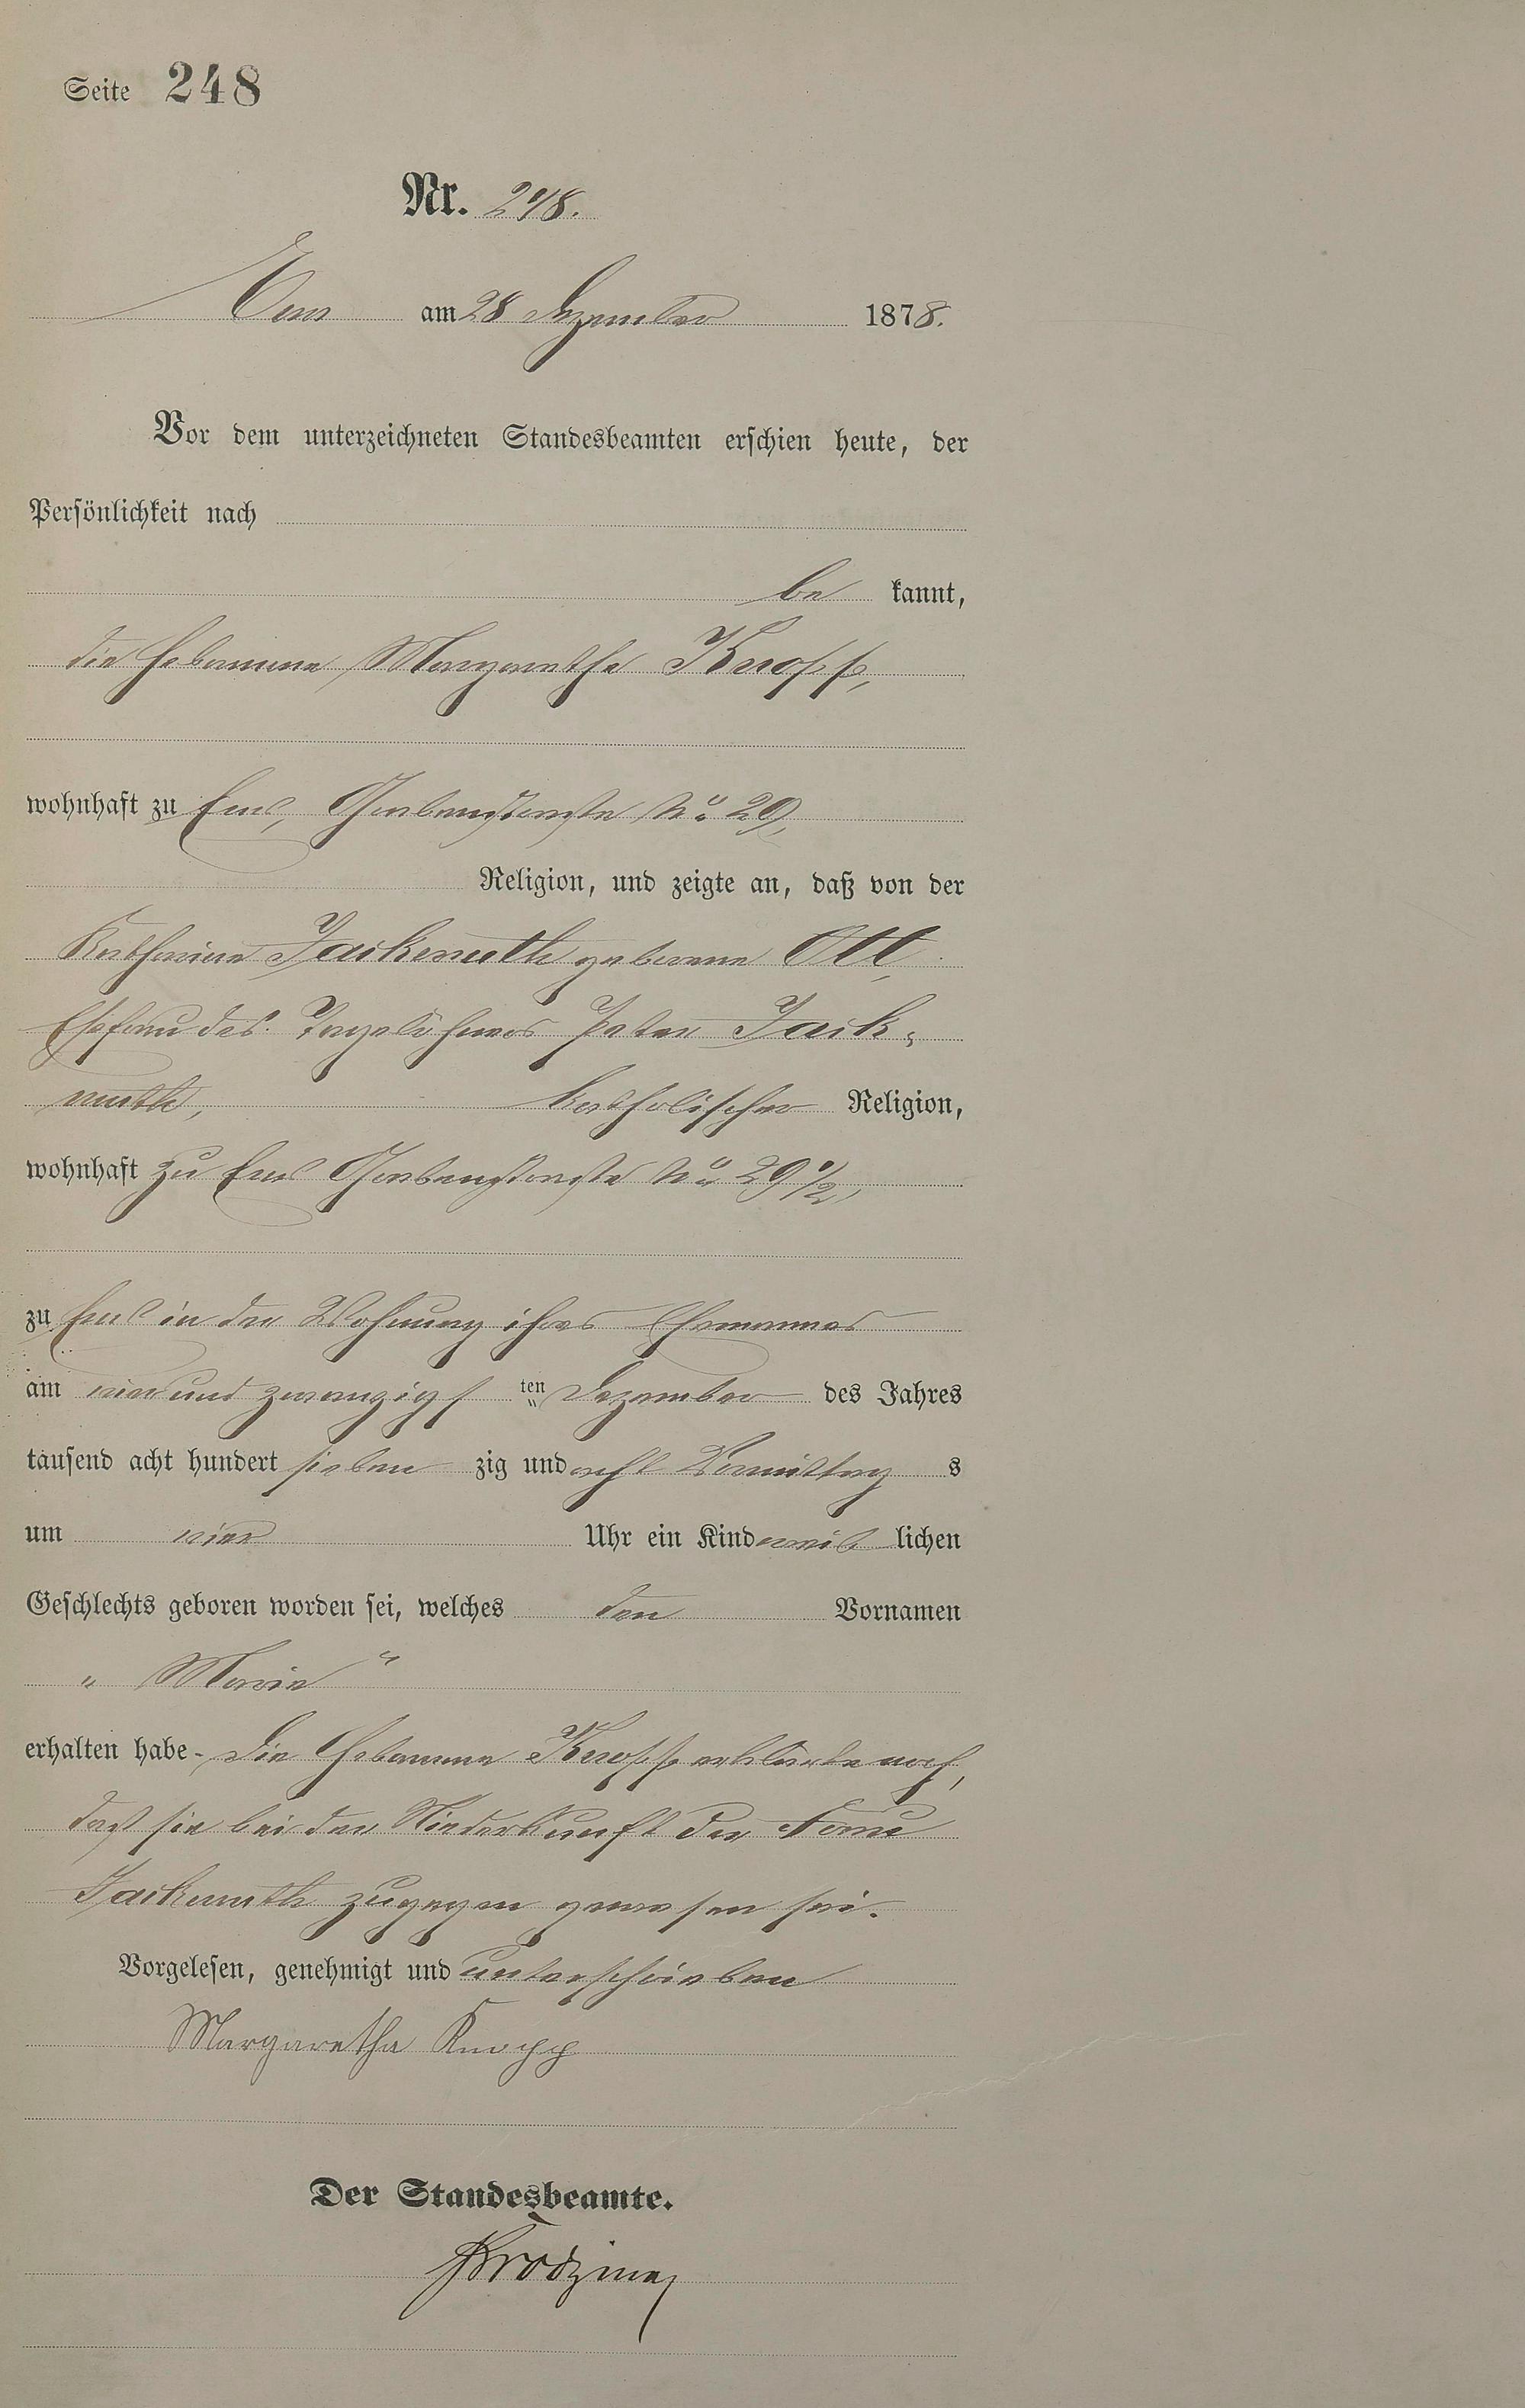 Seite 248
Nr. 248.
Ems am 28 Dezember 1878.
Vor dem unterzeichneten Standesbeamten erschien heute, der
Persönlichkeit nach
be kannt,
die Hebamme Margarethe Knopp,
wohnhaft zu Ems, Grabenstraße No 29,
Religion, und zeigte an, daß von der
Katharine Jackmuth geborene Ott,
Ehefrau des Tagelöhners Peter Jack-
muth, katholischer Religion,
wohnhaft zu Ems Grabenstraße No 29 1/2,
zu Ems in der Wohnung ihres Ehemannes
am vier und zwanzigs ten Dezember des Jahres
tausend acht hundert sieben zig und acht Vormittag s
um vier Uhr ein Kind weib lichen
Geschlechts geboren worden sei, welches den Vornamen
„ Marie “
erhalten habe. Die Hebamme Knopp erklärte noch,
daß sie bei der Niederkunft der Frau
Jackmuth zugegen gewesen sei.
Vorgelesen, genehmigt und unterschrieben
Margaretha Knopp
Der Standesbeamte.